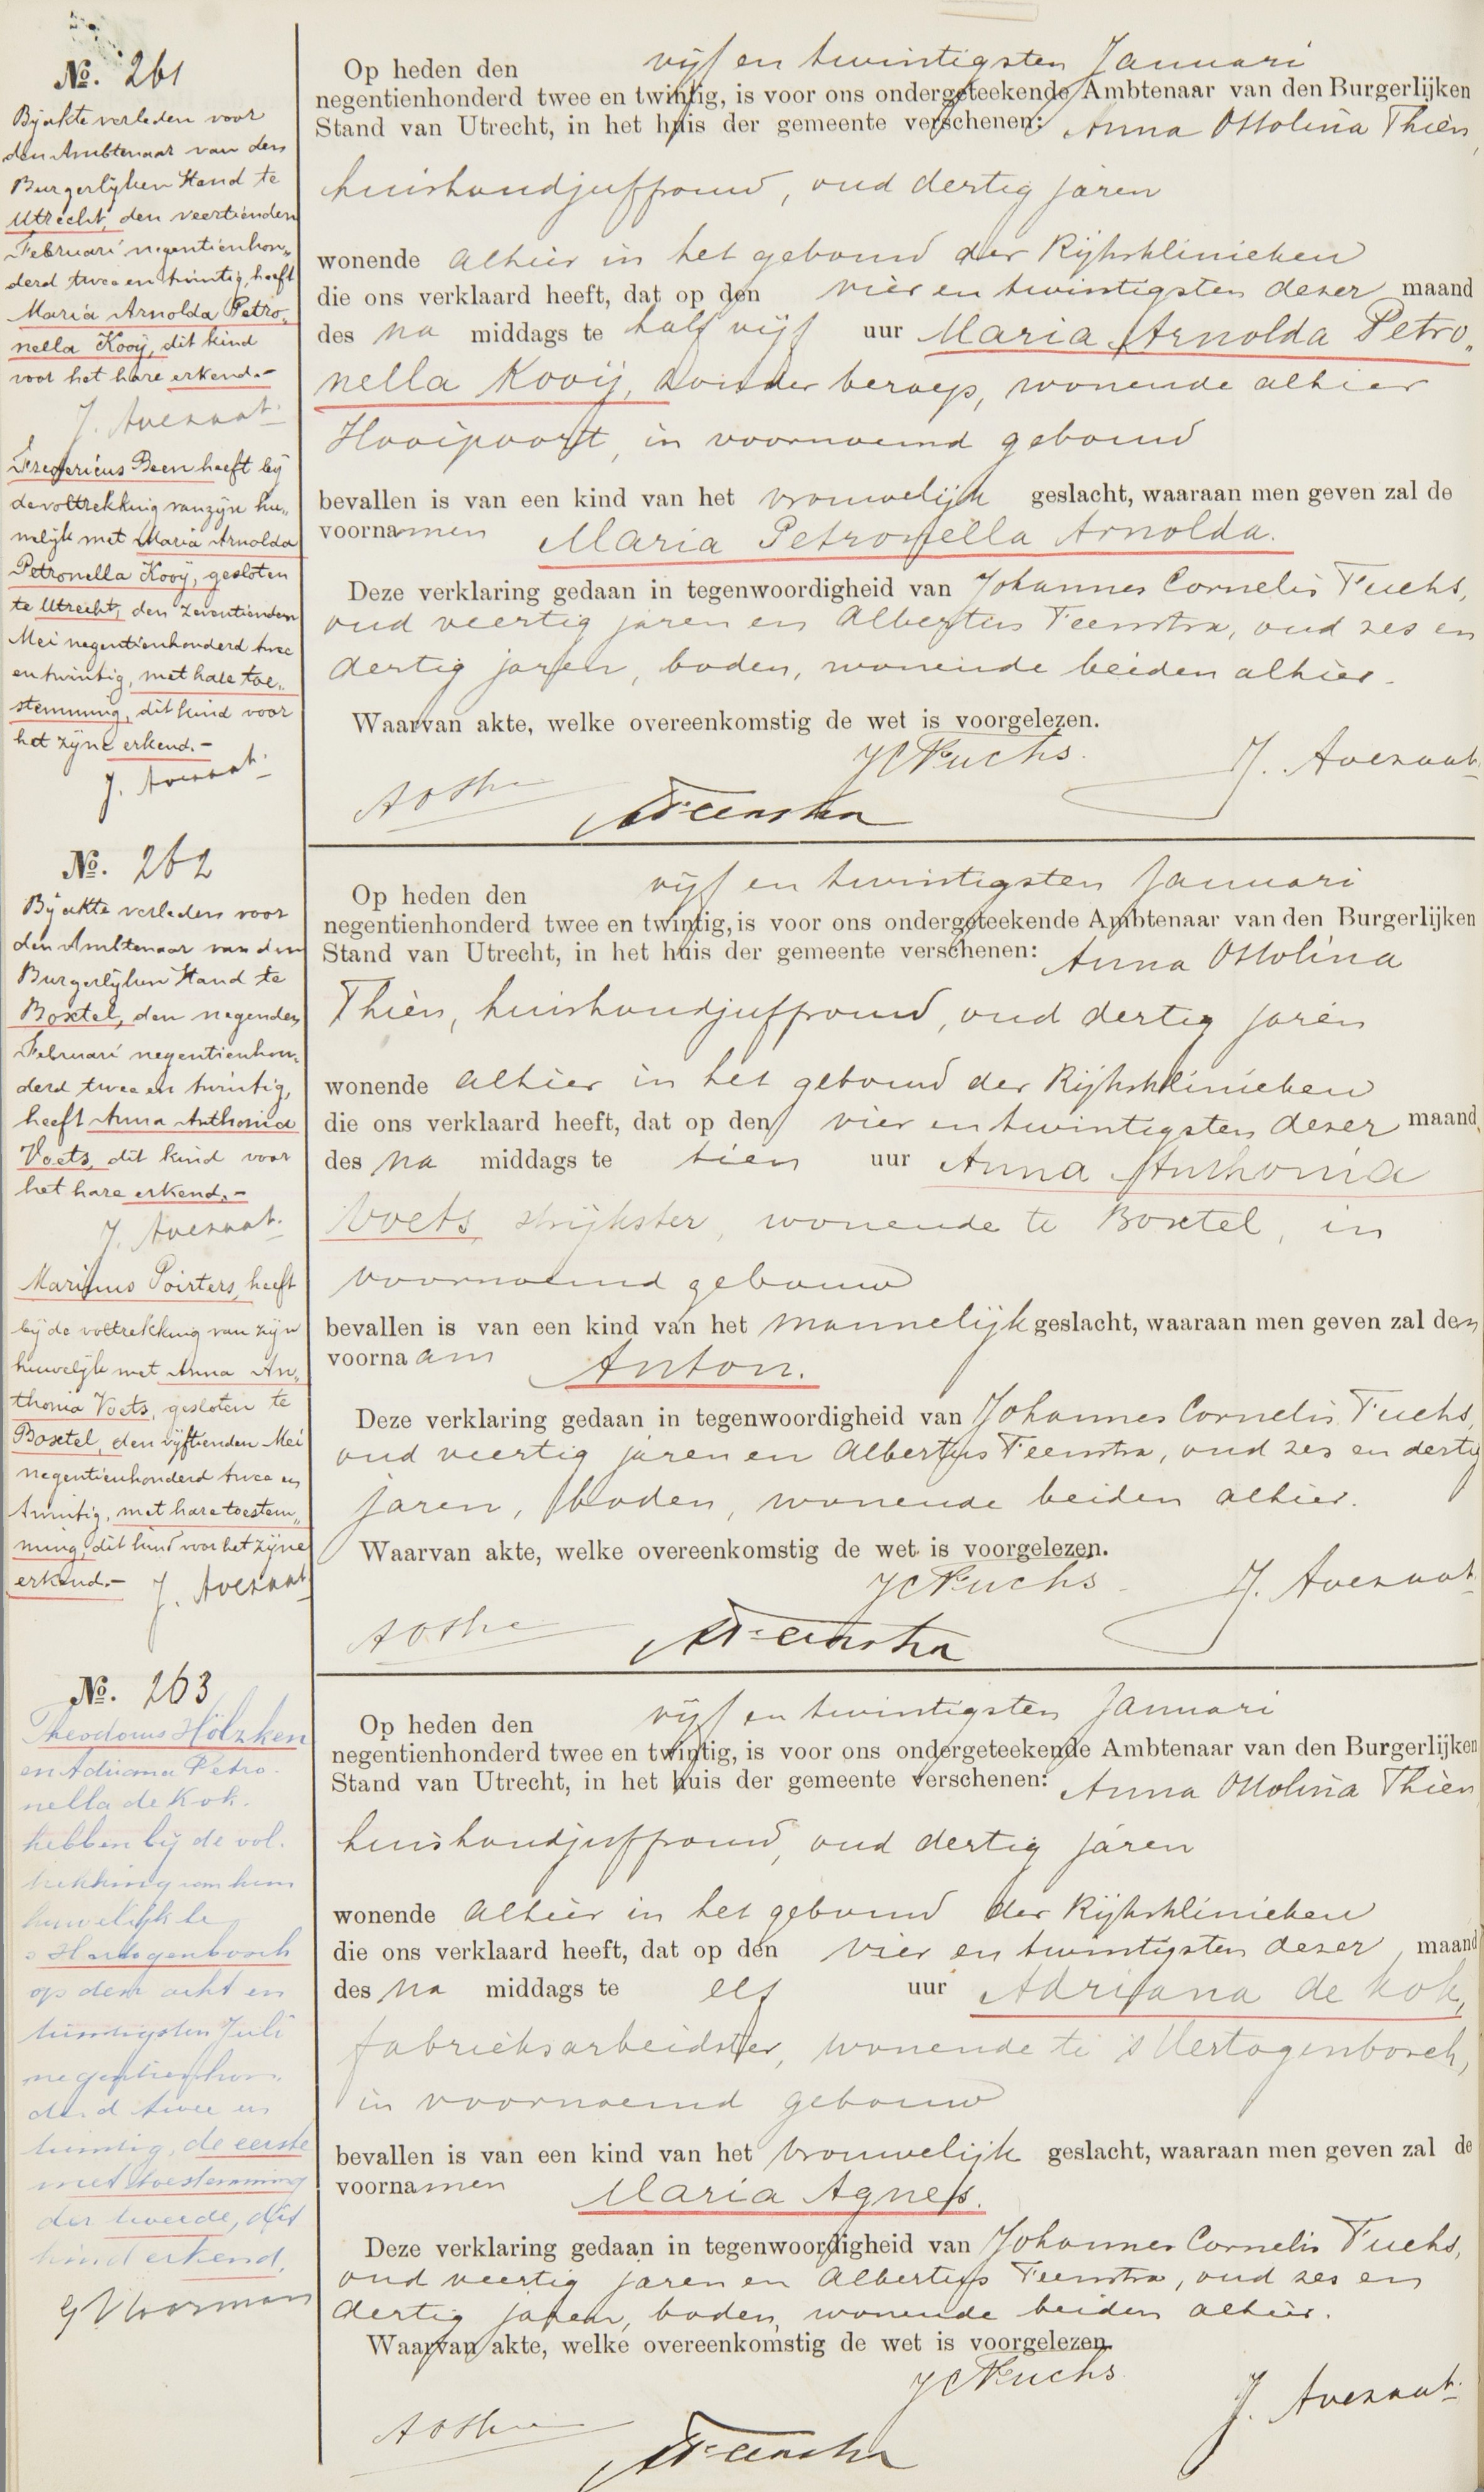 №. 261
Bij akte verleden voor
den Ambtenaar van den
Burgerlijken Stand te
Utrecht, den veertienden
Februari negentienhon„
derd twee en twintig, heeft
Maria Arnolda Petro„
nella Kooij, dit kind
voor het hare erkend.-
J. Avezaat.
Fredericus Been heeft bij
de voltrekking van zijn hu„
welijk met Maria Arnolda
Petronella Kooij, gesloten
te Utrecht, den zeventienden
Mei negentienhonderd twee
en twintig, met hare toe„
stemming, dit kind voor
het zijne erkend.-
J. Avezaat.
Op heden den vijf en twintigsten Januari
negentienhonderd twee en twintig, is voor ons ondergeteekende Ambtenaar van den Burgerlijken
Stand van Utrecht, in het huis der gemeente verschenen: Anna Ottolina Thièn,
huishoudjuffrouw, oud dertig jaren
wonende alhier in het gebouw der Rijksklinieken
die ons verklaard heeft, dat op den vier en twintigsten dezer maand
des na middags te half vijf uur Maria Arnolda Petro„
nella Kooij, zonder beroep, wonende alhier
Hooipoort, in voornoemd gebouw
bevallen is van een kind van het vrouwelijk geslacht, waaraan men geven zal de
voornamen Maria Petronella Arnolda.
Deze verklaring gedaan in tegenwoordigheid van Johannes Cornelis Fuchs,
oud veertig jaren en Albertus Feenstra, oud zes en
dertig jaren, boden, wonende beiden alhier.
Waarvan akte, welke overeenkomstig de wet is voorgelezen.
JCFuchs. J. Avezaat.
AFeenstra
№. 262
Bij akte verleden voor
den Ambtenaar van den
Burgerlijken Stand te
Boxtel, den negenden
Februari negentienhon„
derd twee en twintig,
heeft Anna Anthonia
Voets, dit kind voor
het hare erkend.-
J. Avezaat.
Marinus Poirters, heeft
bij de voltrekking van zijn
huwelijk met Anna An„
thonia Voets, gesloten te
Boxtel, den vijftienden Mei
negentienhonderd twee en
twintig, met hare toestem„
ming, dit kind voor het zijne
erkend.- J. Avezaat
Op heden den vijf en twintigsten Januari
negentienhonderd twee en twintig, is voor ons ondergeteekende Ambtenaar van den Burgerlijken
Stand van Utrecht, in het huis der gemeente verschenen: Anna Ottolina
Thièn, huishoudjuffrouw, oud dertig jaren
wonende alhier in het gebouw der Rijksklinieken
die ons verklaard heeft, dat op den vier en twintigsten dezer maand,
des na middags te tien uur Anna Anthonia
Voets, strijkster, wonende te Boxtel, in
voornoemd gebouw
bevallen is van een kind van het mannelijk geslacht, waaraan men geven zal den
voornaam Anton.
Deze verklaring gedaan in tegenwoordigheid van Johannes Cornelis Fuchs,
oud veertig jaren en Albertus Feenstra, oud zes en dertig
jaren, boden, wonende beiden alhier.
Waarvan akte, welke overeenkomstig de wet is voorgelezen.
JCFuchs J. Avezaat
AFeenstra
№. 263
Theodorus Hölzken
en Adriana Petro-
nella de Kok.
hebben bij de vol.
trekking van hun
huwelijk te
's Hertogenbosch
op den acht en
twintigsten Juli
negentienhon.
derd twee en
twintig, de eerste
met toestemming
der tweede, dit
kind erkend.
Op heden den vijf en twintigsten Januari
negentienhonderd twee en twintig, is voor ons ondergeteekende Ambtenaar van den Burgerlijken
Stand van Utrecht, in het huis der gemeente verschenen: Anna Ottolina Thièn
huishoudjuffrouw, oud dertig jaren
wonende alhier in het gebouw der Rijksklinieken
die ons verklaard heeft, dat op den vier en twintigsten dezer maand
des na middags te elf uur Adriana de Kok,
fabrieksarbeidster, wonende te 's Hertogenbosch,
in voornoemd gebouw
bevallen is van een kind van het vrouwelijk geslacht, waaraan men geven zal de
voornamen Maria Agnes.
Deze verklaring gedaan in tegenwoordigheid van Johannes Cornelis Fuchs,
oud veertig jaren en Albertus Feenstra, oud zes en
dertig jaren, boden, wonende beiden alhier.
Waarvan akte, welke overeenkomstig de wet is voorgelezen.
JCFuchs J. Avezaat.
AFeenstra